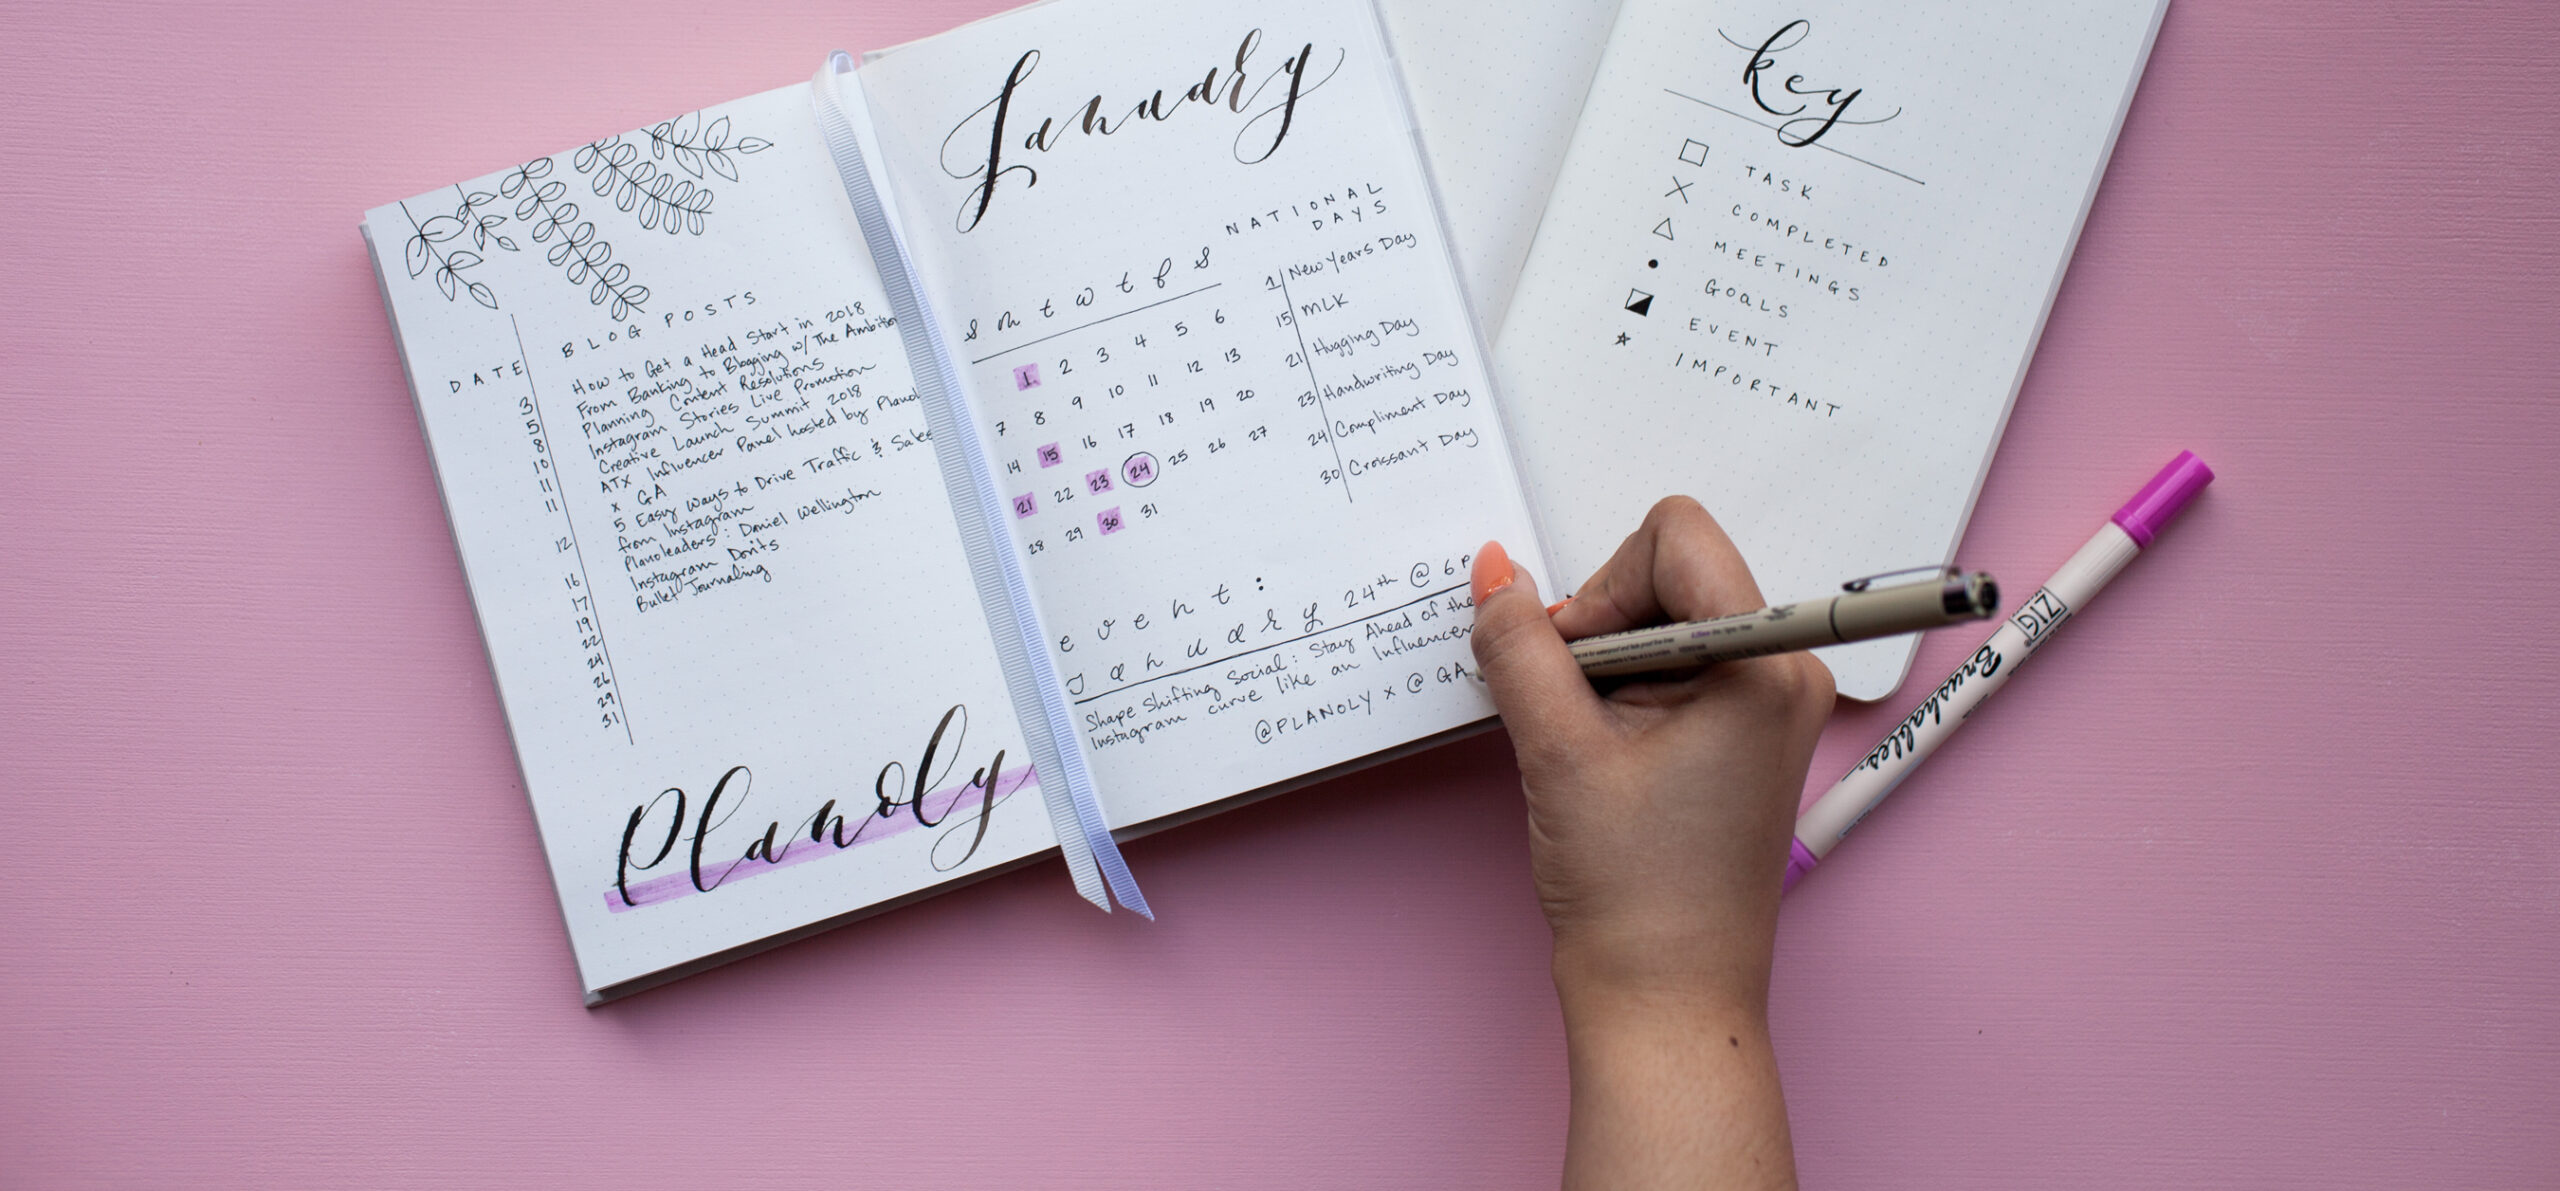 DATE
3
5
8
10
11
11
12
16
17
19
22
24
26
29
31
BLOG POSTS
How to Get a Head Start in 2018
From Banking to Blogging w/ The Ambition
Planning Content Resolutions
Instagram Stories Live Promotion
Creative Launch Summit 2018
ATX Influencer Panel hosted by Planol
x GA
5 Easy Ways to Drive Traffic & Sales
from Instagram
Planoleaders: Daniel Wellington
Instagram Don'ts
Bullet Journaling
Planoly
January
s m t w t f s
1 2 3 4 5 6
7 8 9 10 11 12 13
14 15 16 17 18 19 20
21 22 23 24 25 26 27
28 29 30 31
NATIONAL
DAYS
1 New Years Day
15 MLK
21 Hugging Day
23 Handwriting Day
24 Compliment Day
30 Croissant Day
event:
January 24th @ 6P
Shape Shifting Social: Stay Ahead of the
Instagram curve like an Influencer
@PLANOLY x @GA
key
TASK
COMPLETED
MEETINGS
GOALS
EVENT
IMPORTANT
ZIG
Brushables.